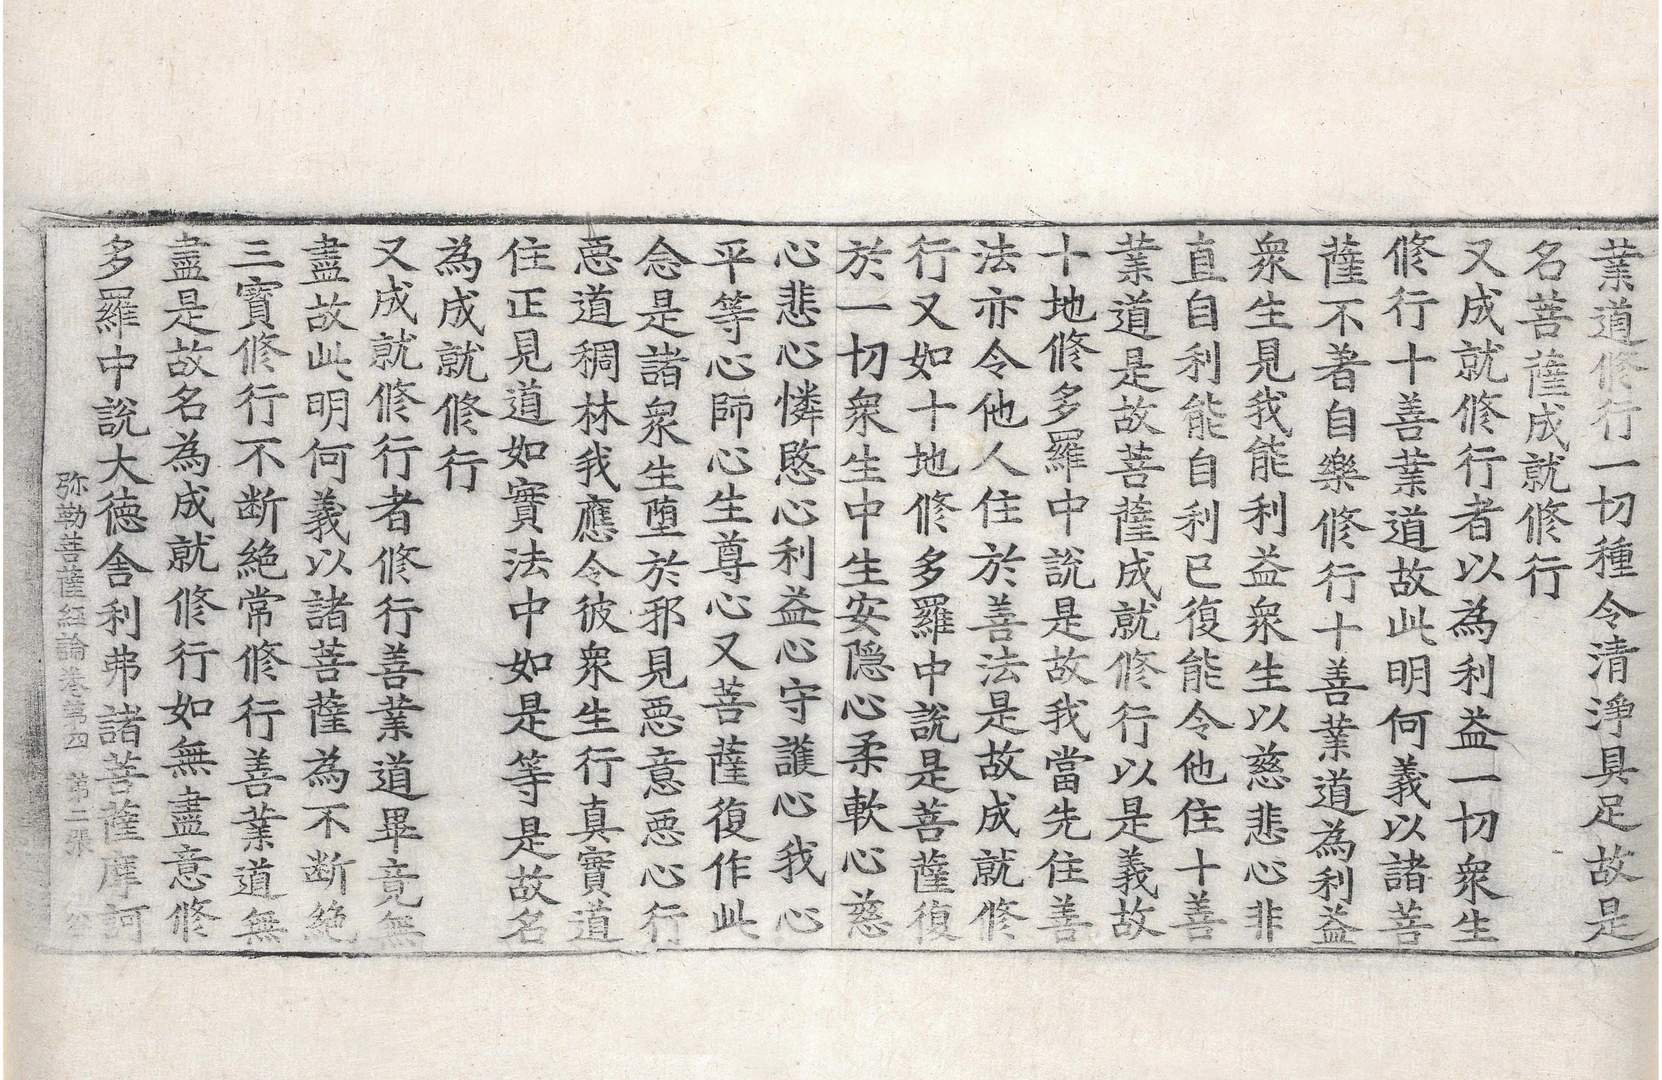 業道修行一切種令清淨具足故是
名菩薩成就修行
又成就修行者以為利益一切衆生
修行十善業道故此明何義以諸菩
薩不著自樂修行十善業道為利益
衆生見我能利益衆生以慈悲心非
直自利能自利已復能令他住十善
業道是故菩薩成就修行以是義故
十地修多羅中說是故我當先住善
法亦令他人住於善法是故成就修
行又如十地修多羅中說是菩薩復
於一切衆生中生安隱心柔軟心慈
心悲心憐愍心利益心守護心我心
平等心師心生尊心又菩薩復作此
念是諸衆生墮於邪見惡意惡心行
惡道稠林我應令彼衆生行真實道
住正見道如實法中如是等是故名
為成就修行
又成就修行者修行善業道畢竟無
盡故此明何義以諸菩薩為不断絶
三寶修行不断絶常修行善業道無
盡是故名為成就修行如無盡意修
多羅中說大德舍利弗諸菩薩摩訶
弥勒菩薩經論卷第四 第二張